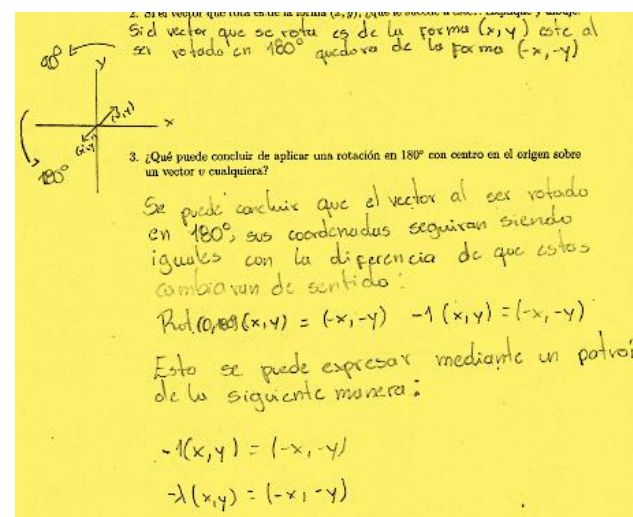 2. Si el vector que rota es de la forma (x, y), ¿qué le sucede a este? Explique y dibuje.
Si el vector que se rota es de la forma (x,y) este al
ser rotado en 180° quedara de la forma (-x,-y)
90°
y
(x,y)
x
180°
3. ¿Qué puede concluir de aplicar una rotación en 180° con centro en el origen sobre
un vector v cualquiera?
Se puede concluir que el vector al ser rotado
en 180°, sus coordenadas seguiran siendo
iguales con la diferencia de que estas
cambiaran de sentido:
Rot(0,180)(x,y) = (-x,-y) -1(x,y) = (-x,-y)
Esto se puede expresar mediante un
de la siguiente manera:
-1(x,y) = (-x,-y)
-λ(x,y) = (-x,-y)